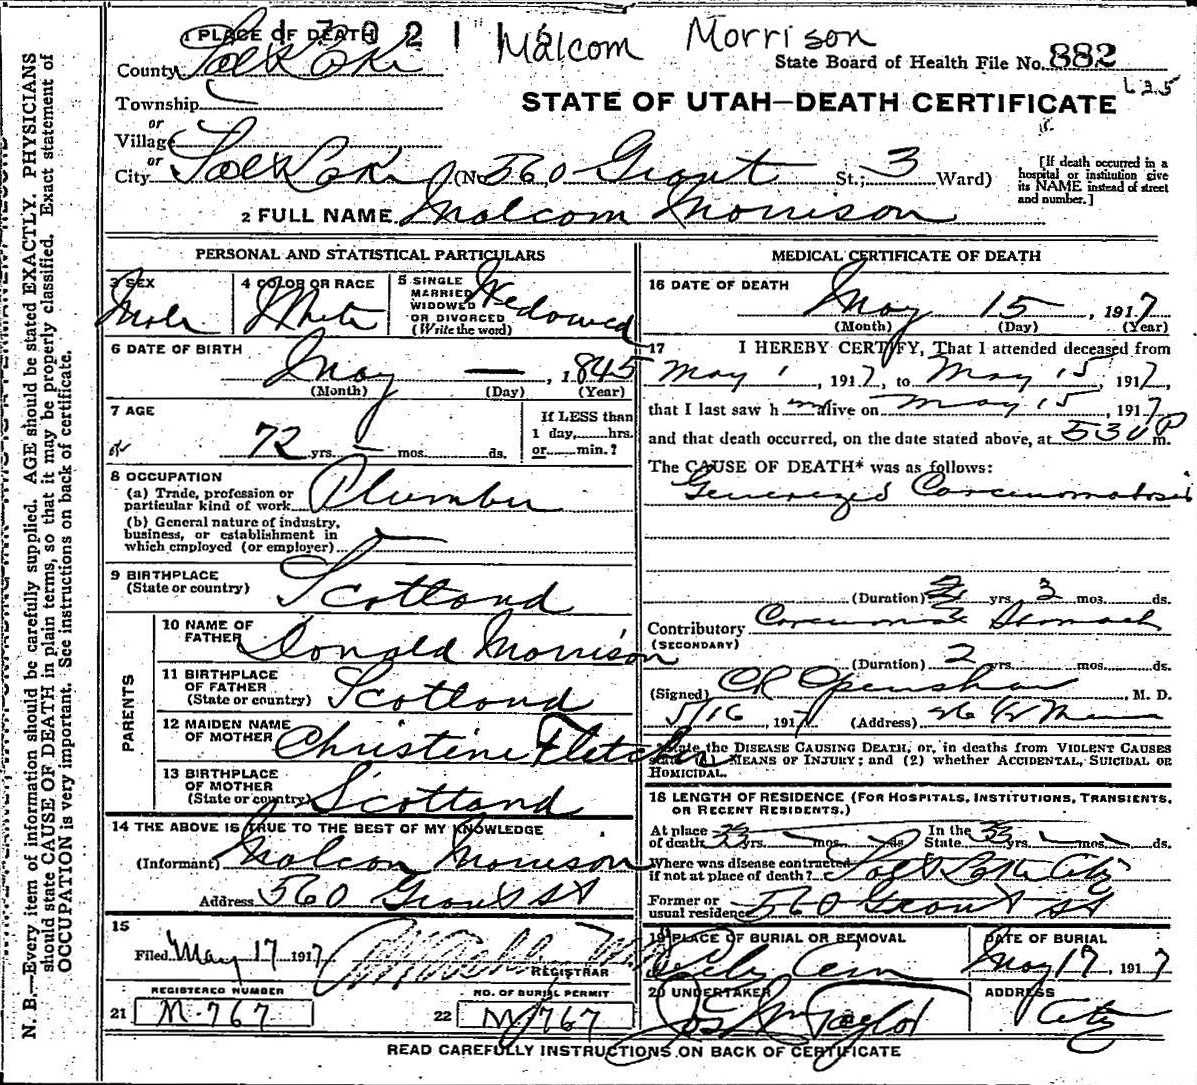 Malcom Morrison
1 PLACE OF DEATH
State Board of Health File No. 882
County Salt Lake
Township
STATE OF UTAH—DEATH CERTIFICATE
or
Village
or
City Salt Lake (No. 560 Grant St.; 3 Ward)
[If death occurred in a hospital or institution give its NAME instead of street and number.]
2 FULL NAME Malcom Morrison
PERSONAL AND STATISTICAL PARTICULARS
3 SEX Male
4 COLOR OR RACE White
5 SINGLE MARRIED WIDOWED OR DIVORCED (Write the word) Widowed
6 DATE OF BIRTH May — , 1845
(Month) (Day) (Year)
7 AGE 72 yrs. — mos. ds.
If LESS than 1 day, hrs. or min.?
8 OCCUPATION
(a) Trade, profession or particular kind of work Plumber
(b) General nature of industry, business, or establishment in which employed (or employer)
9 BIRTHPLACE (State or country) Scotland
PARENTS
10 NAME OF FATHER Donald Morrison
11 BIRTHPLACE OF FATHER (State or country) Scotland
12 MAIDEN NAME OF MOTHER Christine Fletcher
13 BIRTHPLACE OF MOTHER (State or country) Scotland
14 THE ABOVE IS TRUE TO THE BEST OF MY KNOWLEDGE
(Informant) Malcom Morrison
Address 560 Grant St
15
Filed May 17 1917
REGISTRAR
REGISTERED NUMBER
21 M-767
NO. OF BURIAL PERMIT
22 M 767
MEDICAL CERTIFICATE OF DEATH
16 DATE OF DEATH May 15 , 1917
(Month) (Day) (Year)
17 I HEREBY CERTIFY, That I attended deceased from
May 1 , 1917, to May 15, 1917,
that I last saw h im alive on May 15, 1917
and that death occurred, on the date stated above, at 530 P m.
The CAUSE OF DEATH* was as follows:
Carcinomatosis
(Duration) yrs. 3 mos. ds.
Contributory Stomach
(SECONDARY)
(Duration) 2 yrs. mos. ds.
(Signed) CR Openshaw , M. D.
5/16 , 1917 (Address)
*State the DISEASE CAUSING DEATH, or, in deaths from VIOLENT CAUSES
state (1) MEANS OF INJURY; and (2) whether ACCIDENTAL, SUICIDAL OR
HOMICIDAL.
18 LENGTH OF RESIDENCE (FOR HOSPITALS, INSTITUTIONS, TRANSIENTS, OR RECENT RESIDENTS.)
At place of death 33 yrs. mos. ds. In the State 33 yrs. mos. ds.
Where was disease contracted if not at place of death? Salt Lake City
Former or usual residence 560 Grant St
19 PLACE OF BURIAL OR REMOVAL City Cem
DATE OF BURIAL May 17, 1917
20 UNDERTAKER Jos Wm Taylor
ADDRESS City
READ CAREFULLY INSTRUCTIONS ON BACK OF CERTIFICATE
N. B.—Every item of information should be carefully supplied. AGE should be stated EXACTLY. PHYSICIANS
should state CAUSE OF DEATH in plain terms, so that it may be properly classified. Exact statement of
OCCUPATION is very important. See instructions on back of certificate.